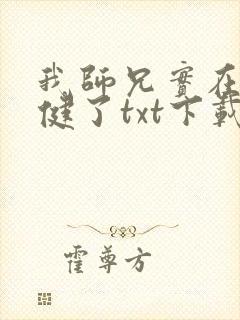 我師兄實在
健了txt下載
霍尊方